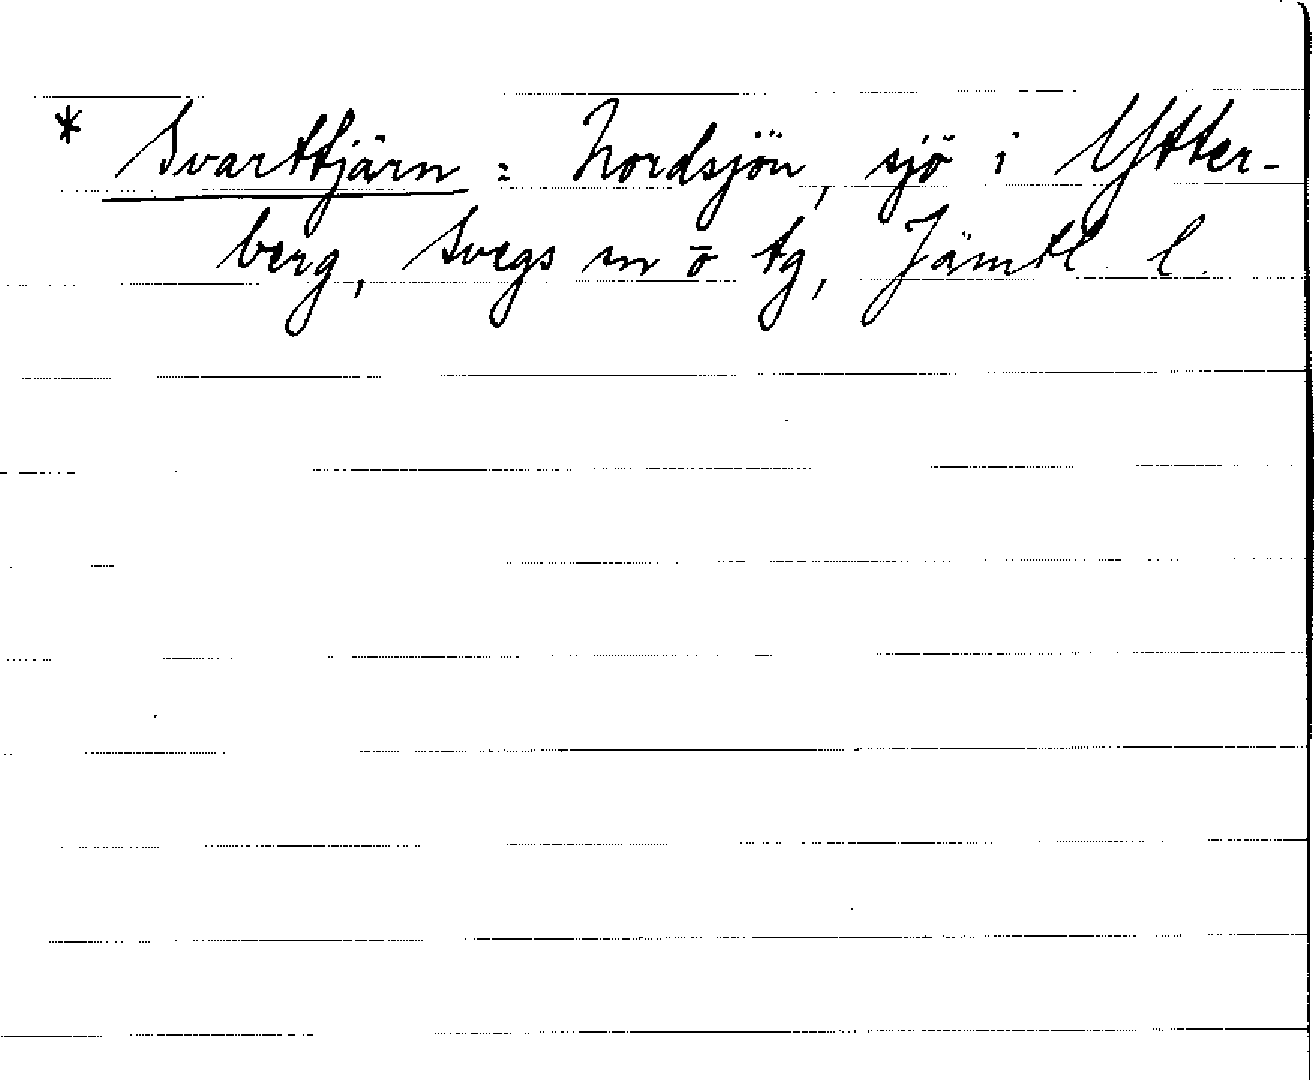 * Svarttjärn = Nordsjön, sjö i Ytter-
berg, Svegs m ō tg, Jämtl l